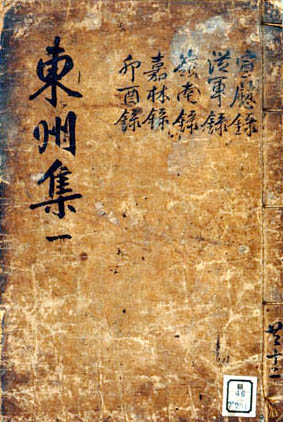 東州集 一
宣慰錄
從軍錄
嶺南錄
嘉林錄
卯酉錄
共十三
46